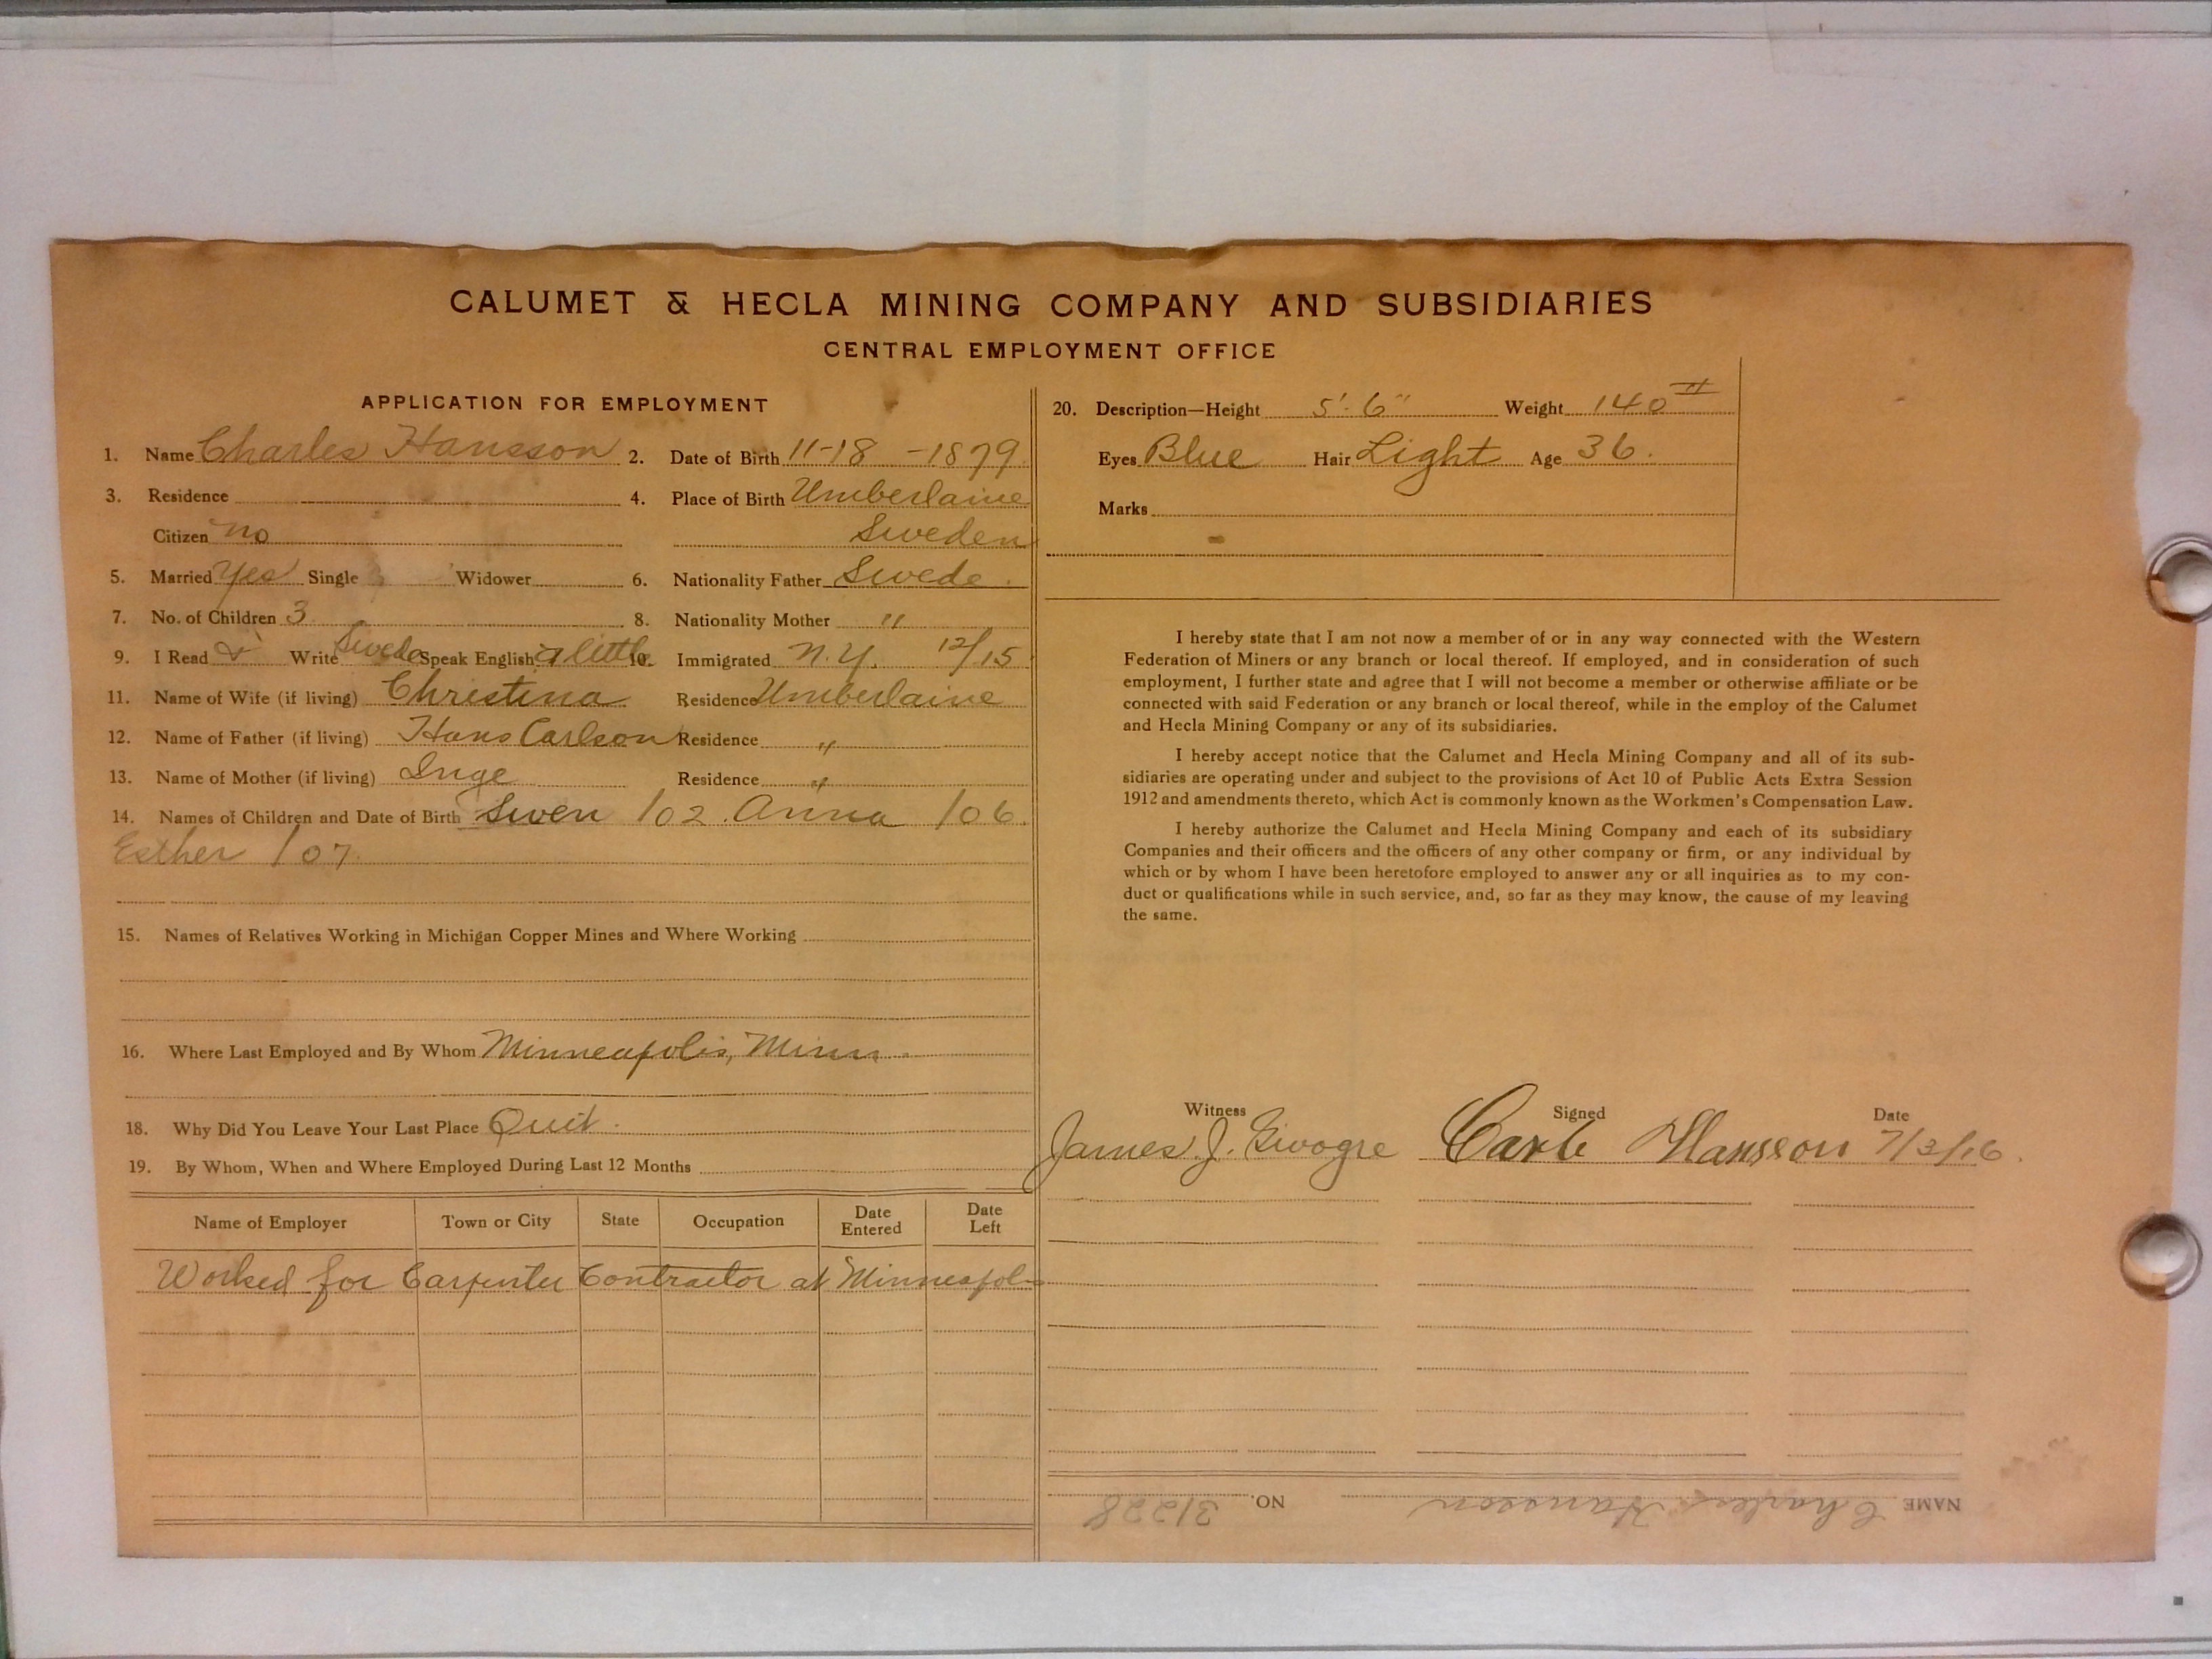 CALUMET & HECLA MINING COMPANY AND SUBSIDIARIES
CENTRAL EMPLOYMENT OFFICE
APPLICATION FOR EMPLOYMENT
1. Name Charles Hansson 2. Date of Birth 11-18-1879
3. Residence 4. Place of Birth Umberlaine
Citizen no Sweden
5. Married Yes Single Widower 6. Nationality Father Swede.
7. No. of Children 3 8. Nationality Mother "
9. I Read & Write Swede Speak English a little 10. Immigrated N.Y. 12/15
11. Name of Wife (if living) Christina Residence Umberlaine
12. Name of Father (if living) Hans Carlson Residence "
13. Name of Mother (if living) Inge Residence "
14. Names of Children and Date of Birth Swen /02. Anna /06.
Esther /07
15. Names of Relatives Working in Michigan Copper Mines and Where Working
16. Where Last Employed and By Whom Minneapolis, Minn.
18. Why Did You Leave Your Last Place Quit.
19. By Whom, When and Where Employed During Last 12 Months
Name of Employer Town or City State Occupation Date Entered Date Left
Worked for Carpenter Contractor at Minneapolis
20. Description—Height 5'-6" Weight 140#
Eyes Blue Hair Light Age 36.
Marks
I hereby state that I am not now a member of or in any way connected with the Western
Federation of Miners or any branch or local thereof. If employed, and in consideration of such
employment, I further state and agree that I will not become a member or otherwise affiliate or be
connected with said Federation or any branch or local thereof, while in the employ of the Calumet
and Hecla Mining Company or any of its subsidiaries.
I hereby accept notice that the Calumet and Hecla Mining Company and all of its sub-
sidiaries are operating under and subject to the provisions of Act 10 of Public Acts Extra Session
1912 and amendments thereto, which Act is commonly known as the Workmen's Compensation Law.
I hereby authorize the Calumet and Hecla Mining Company and each of its subsidiary
Companies and their officers and the officers of any other company or firm, or any individual by
which or by whom I have been heretofore employed to answer any or all inquiries as to my con-
duct or qualifications while in such service, and, so far as they may know, the cause of my leaving
the same.
Witness Signed Date
James J. Carl Hansson 7/3/16.
NAME Charles Hansson NO. 31228